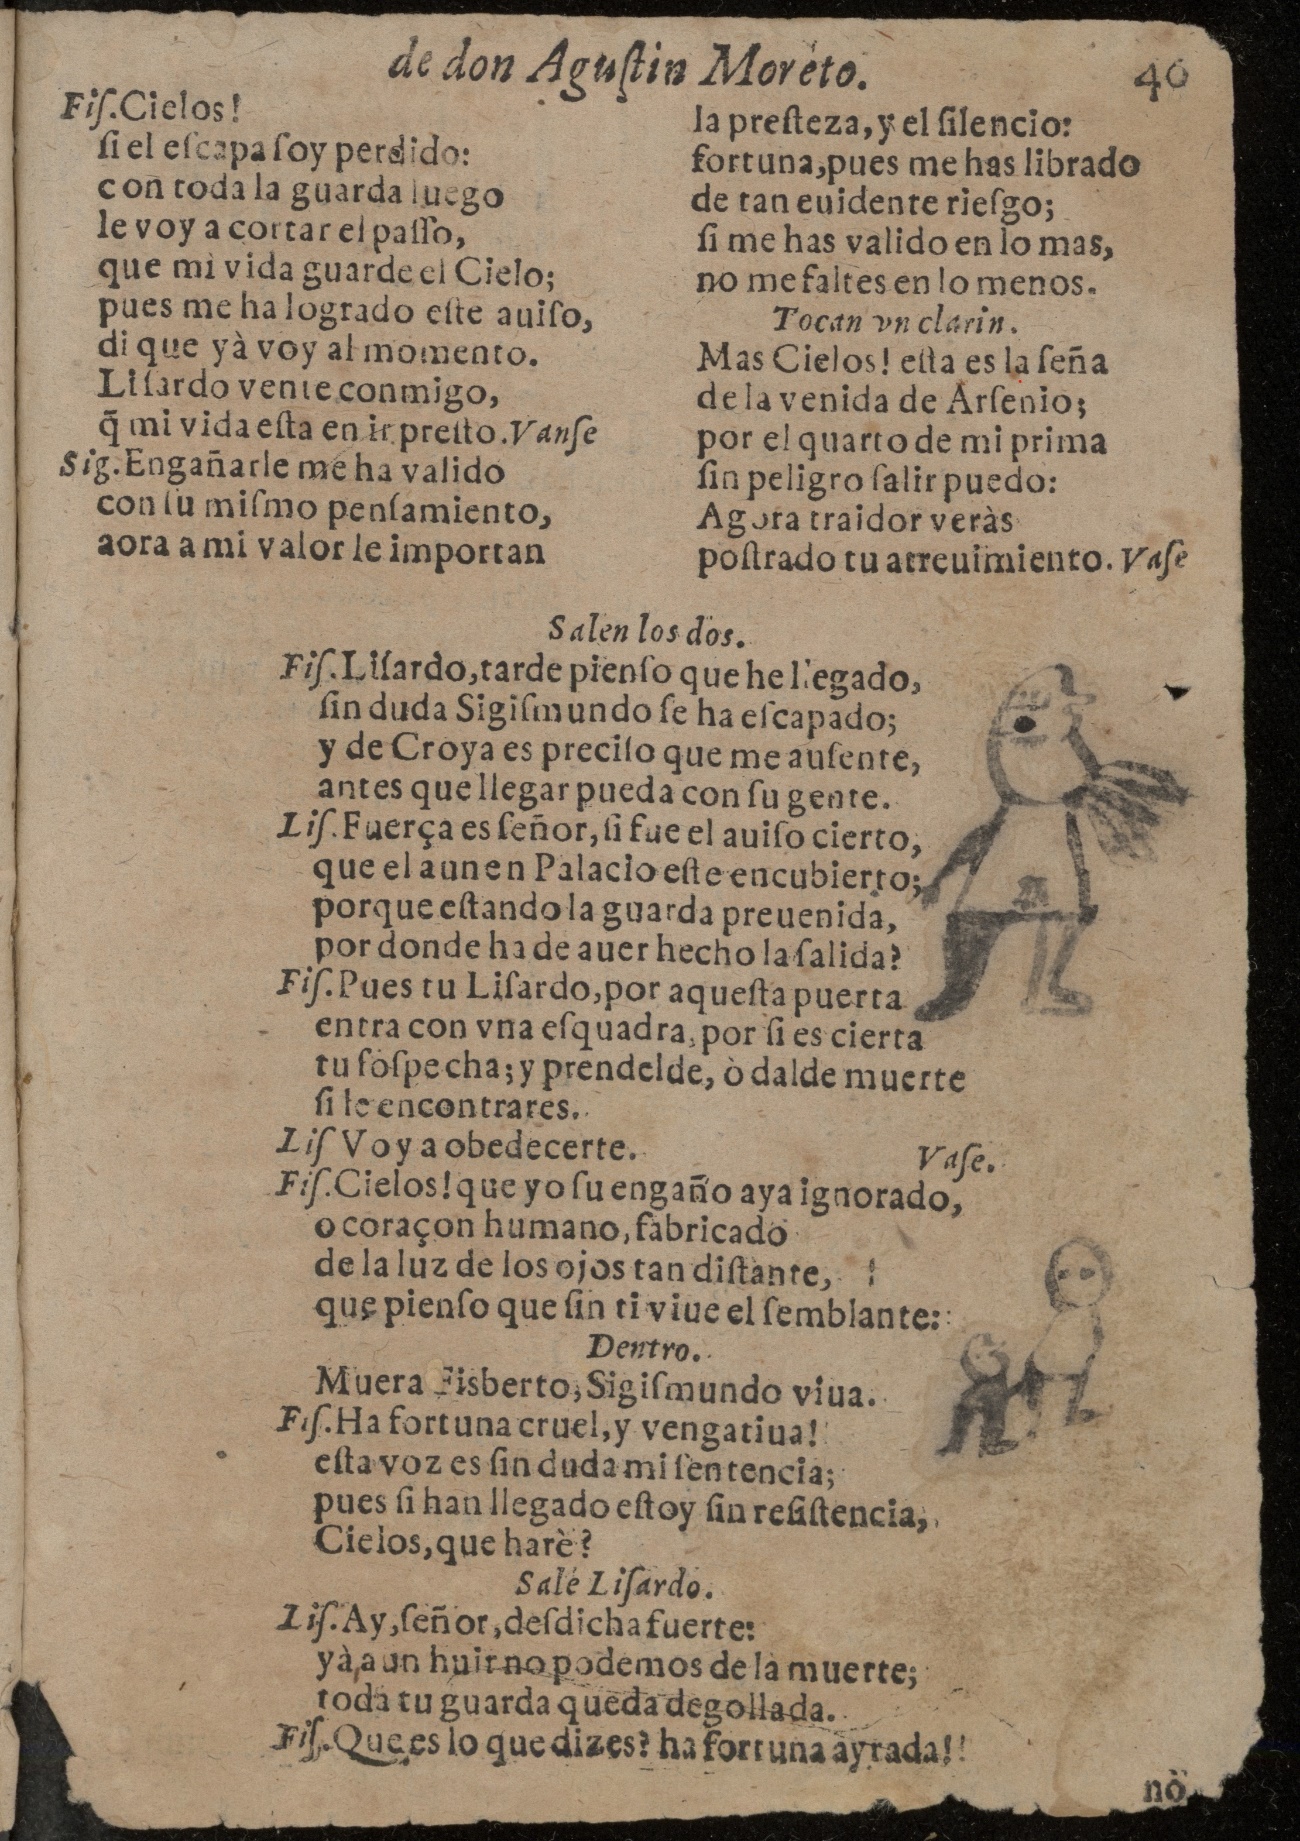 de don Aguſtin Moreto.
40
Fiſ. Cielos!
ſi el eſcapa ſoy perdido:
con toda la guarda luego
le voy a cortar el paſſo,
que mi vida guarde el Cielo;
pues me ha logrado eſte auiſo,
di que yà voy al momento.
Liſardo vente conmigo,
q̃ mi vida eſta en ir preſto. Vanſe
Sig. Engañarle me ha valido
con ſu miſmo penſamiento,
aora a mi valor le importan
la preſteza, y el ſilencio:
fortuna, pues me has librado
de tan euidente rieſgo;
ſi me has valido en lo mas,
no me faltes en lo menos.
Tocan vn clarin.
Mas Cielos! eſta es la ſeña
de la venida de Arſenio;
por el quarto de mi prima
ſin peligro ſalir puedo:
Agora traidor veràs
poſtrado tu atreuimiento. Vaſe
Salen los dos.
Fiſ. Liſardo, tarde pienſo que he llegado,
ſin duda Sigiſmundo ſe ha eſcapado;
y de Croya es preciſo que me auſente,
antes que llegar pueda con ſu gente.
Liſ. Fuerça es ſeñor, ſi fue el auiſo cierto,
que el aun en Palacio eſte encubierto;
porque eſtando la guarda preuenida,
por donde ha de auer hecho la ſalida?
Fiſ. Pues tu Liſardo, por aqueſta puerta
entra con vna eſquadra, por ſi es cierta
tu ſoſpecha; y prendelde, ò dalde muerte
ſi le encontrares.
Liſ Voy a obedecerte. Vaſe.
Fiſ. Cielos! que yo ſu engaño aya ignorado,
o coraçon humano, fabricado
de la luz de los ojos tan diſtante, !
que pienſo que ſin ti viue el ſemblante:
Dentro.
Muera Fisberto, Sigiſmundo viua.
Fiſ. Ha fortuna cruel, y vengatiua!
eſta voz es ſin duda mi ſentencia;
pues ſi han llegado eſtoy ſin reſiſtencia,
Cielos, que harè?
Sale Liſardo.
Liſ. Ay, ſeñor, deſdicha fuerte:
yà aun huir no podemos de la muerte;
toda tu guarda queda degollada.
Fiſ. Que es lo que dizes? ha fortuna ayrada!
nō